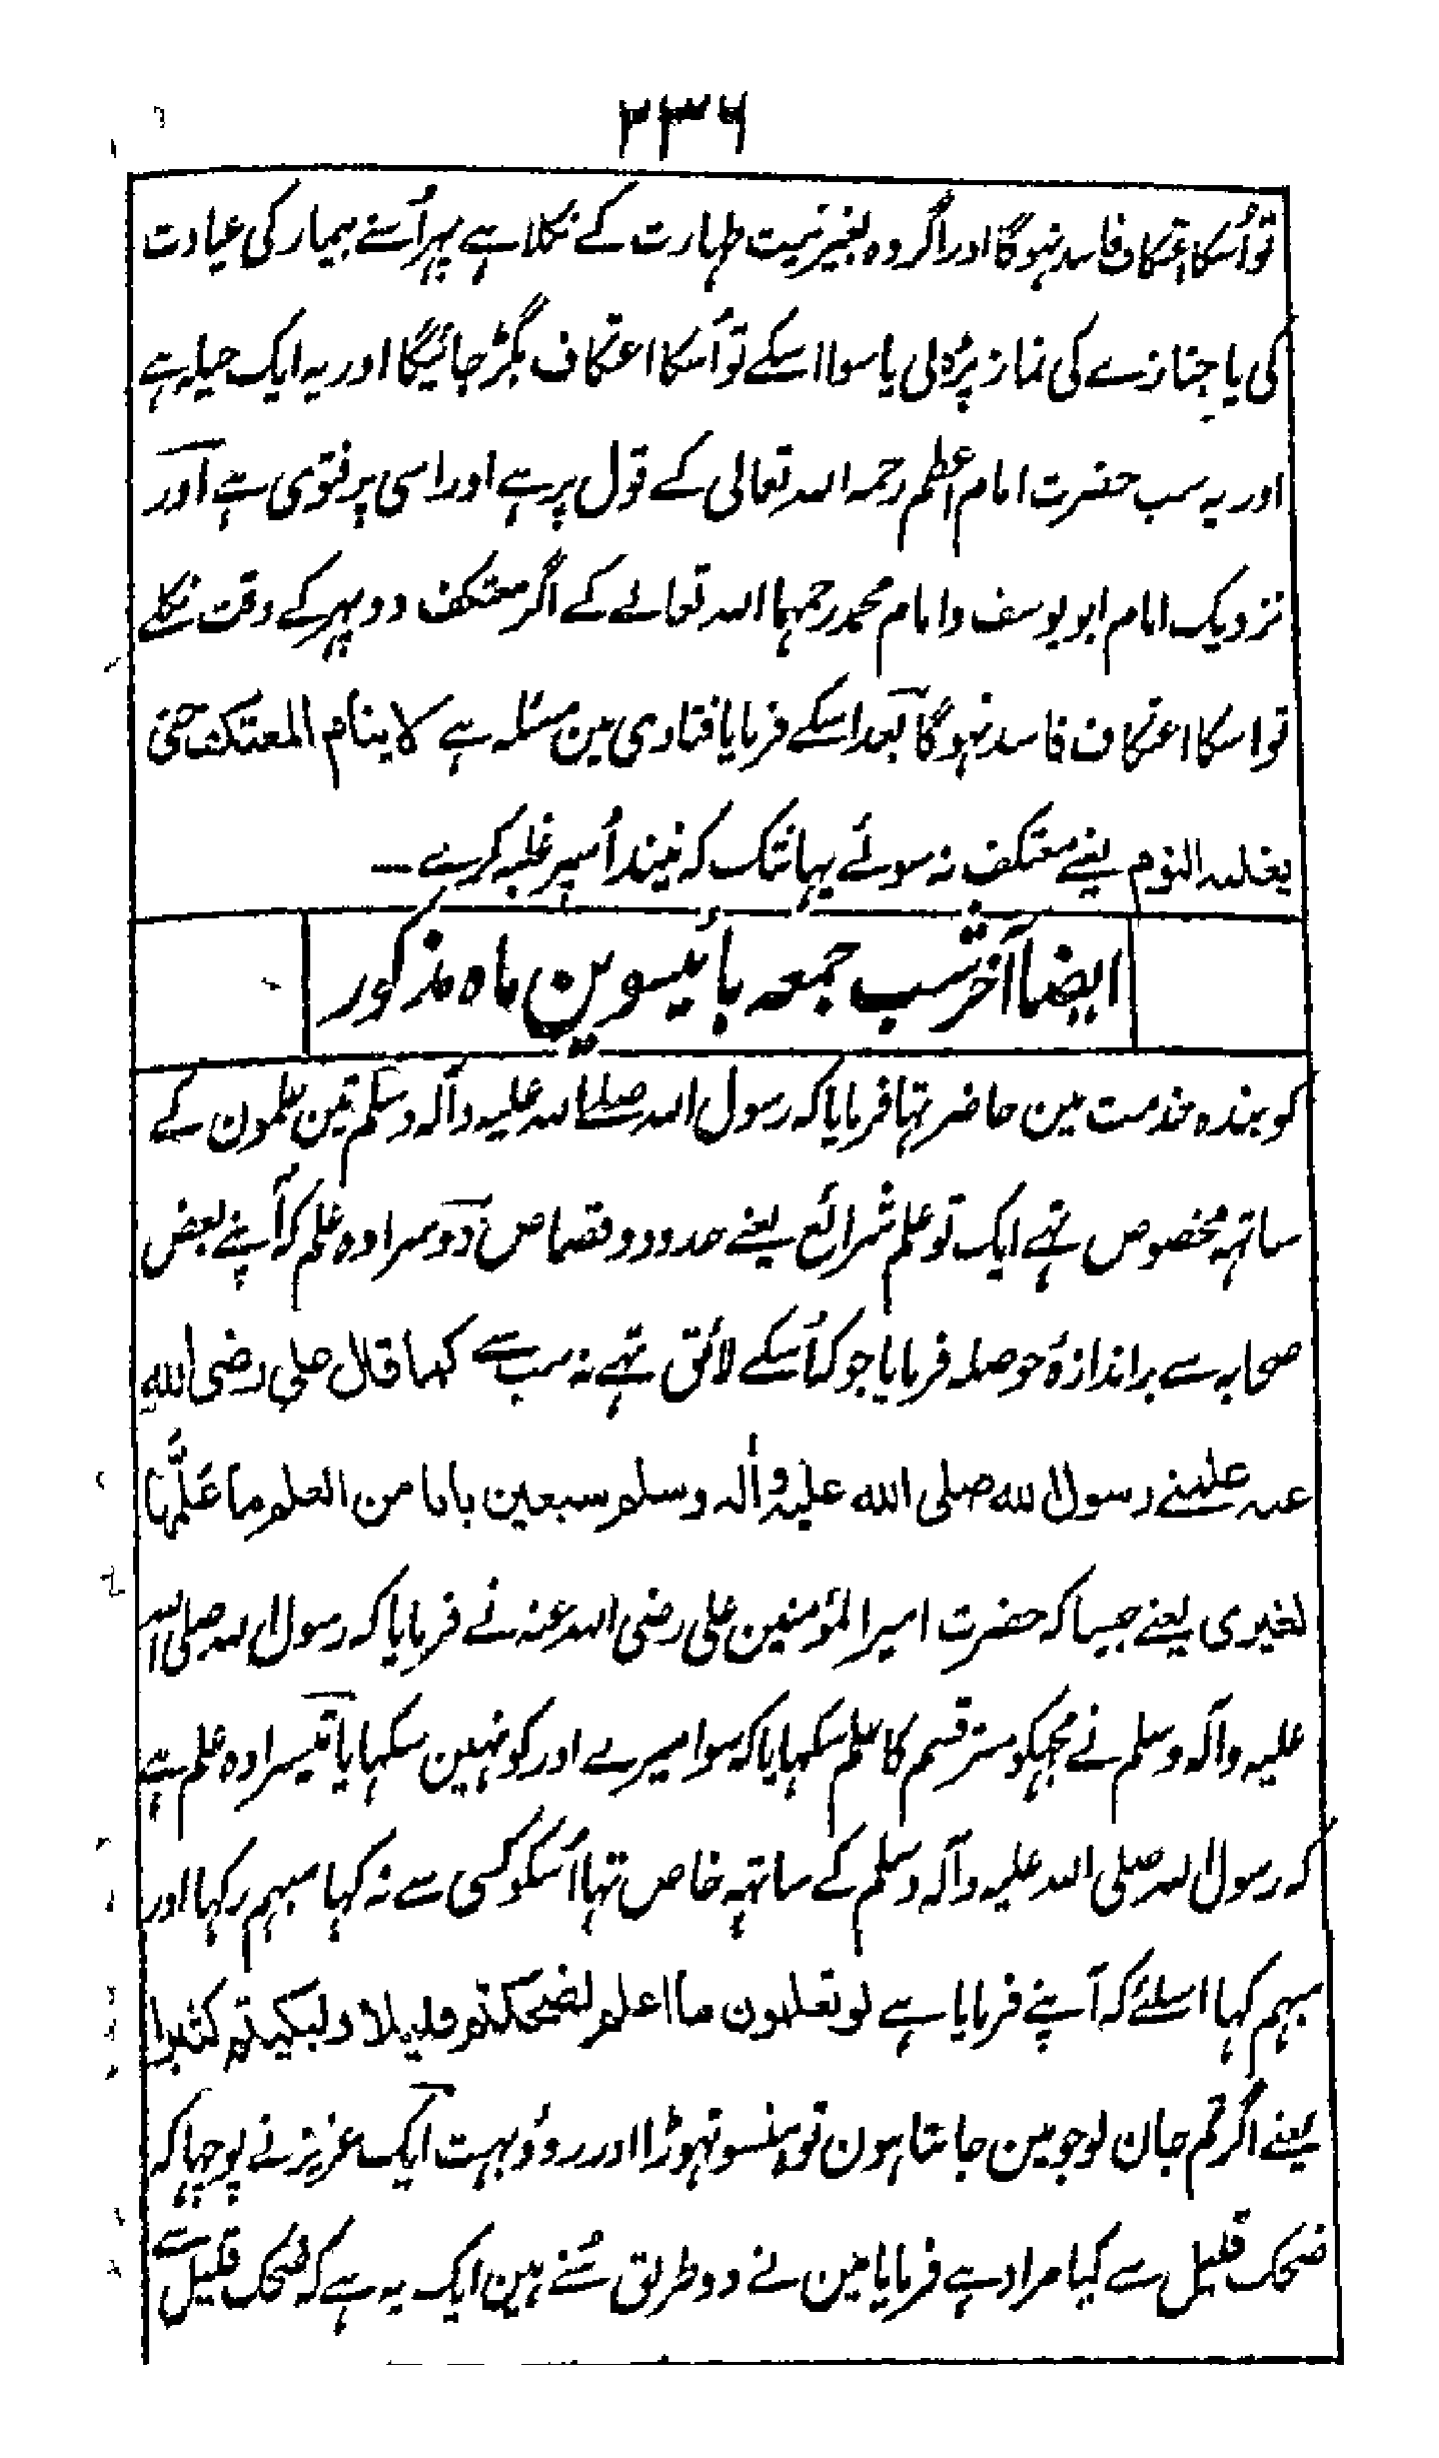 ۲۳۶
تو اُسکا اعتکاف فاسد نہوگا اور اگر وہ بغیر نیت طہارت کے نکلا ہے پہر اُسنے بیمار کی عیادت
کی یا جنازے کی نماز پڑہ لی یا سوا اسکے تو اُسکا اعتکاف بگڑ جائیگا اور یہ ایک حیلہ ہے
اور یہ سب حضرت امام اعظم رحمہ اللہ تعالی کے قول پر ہے اور اسی پر فتوی ہے اَور
نزدیک امام ابو یوسف و امام محمد رحمہما اللہ تعالے کے اگر معتکف دوپہر کے وقت نکلے
تو اسکا اعتکاف فاسد نہوگا بعد اسکے فرمایا فتاوی مین مسئلہ ہے لا ینام المعتکف حتی
یغلبہ النوم یعنے معتکف نہ سوئے یہانتک کہ نیند اُسپر غلبہ کرے ــ
ایضاً آخر شب جمعہ بائیسوین ماہ مذکور
کو بندہ خدمت مین حاضر تہا فرمایا کہ رسول اللہ صلے اللہ علیہ وآلہ وسلم تین علمون کے
ساتہہ مخصوص تہے ایک تو علم شرائع یعنے حدود و قصاص دوسرا وہ علم کہ آپنے بعض
صحابہ سے براندازۂ حوصلہ فرمایا جو کہ اُسکے لائق تہے نہ سب سے کہا قال علی رضی الله
عنہ علمنے رسول الله صلی الله علیہ وآلہ وسلم سبعین بابا من العلم ما عَلَّمَہا
لغیری یعنے جیسا کہ حضرت امیر المؤمنین علی رضی اللہ عنہ نے فرمایا کہ رسول اللہ صلی اللہ
علیہ وآلہ وسلم نے مجہکو ستر قسم کا علم سکہایا کہ سوا میرے اور کو نہین سکہایا تیسرا وہ علم ہے
کہ رسول اللہ صلی اللہ علیہ وآلہ وسلم کے ساتہہ خاص تہا اُسکو کسی سے نہ کہا مبہم رکہا اور
مبہم کہا اسلئے کہ آپنے فرمایا ہے لو تعلمون ما اعلم لضحکتم قلیلا ولبکیتم کثیرا
یعنے اگر تم جان لو جو مین جانتا ہون تو ہنسو تہوڑا اور روؤ بہت ایک عزیز نے پوچہا کہ
ضحک قلیل سے کیا مراد ہے فرمایا مین نے دو طریق سُنے ہین ایک یہ ہے کہ ضحک قلیل سے